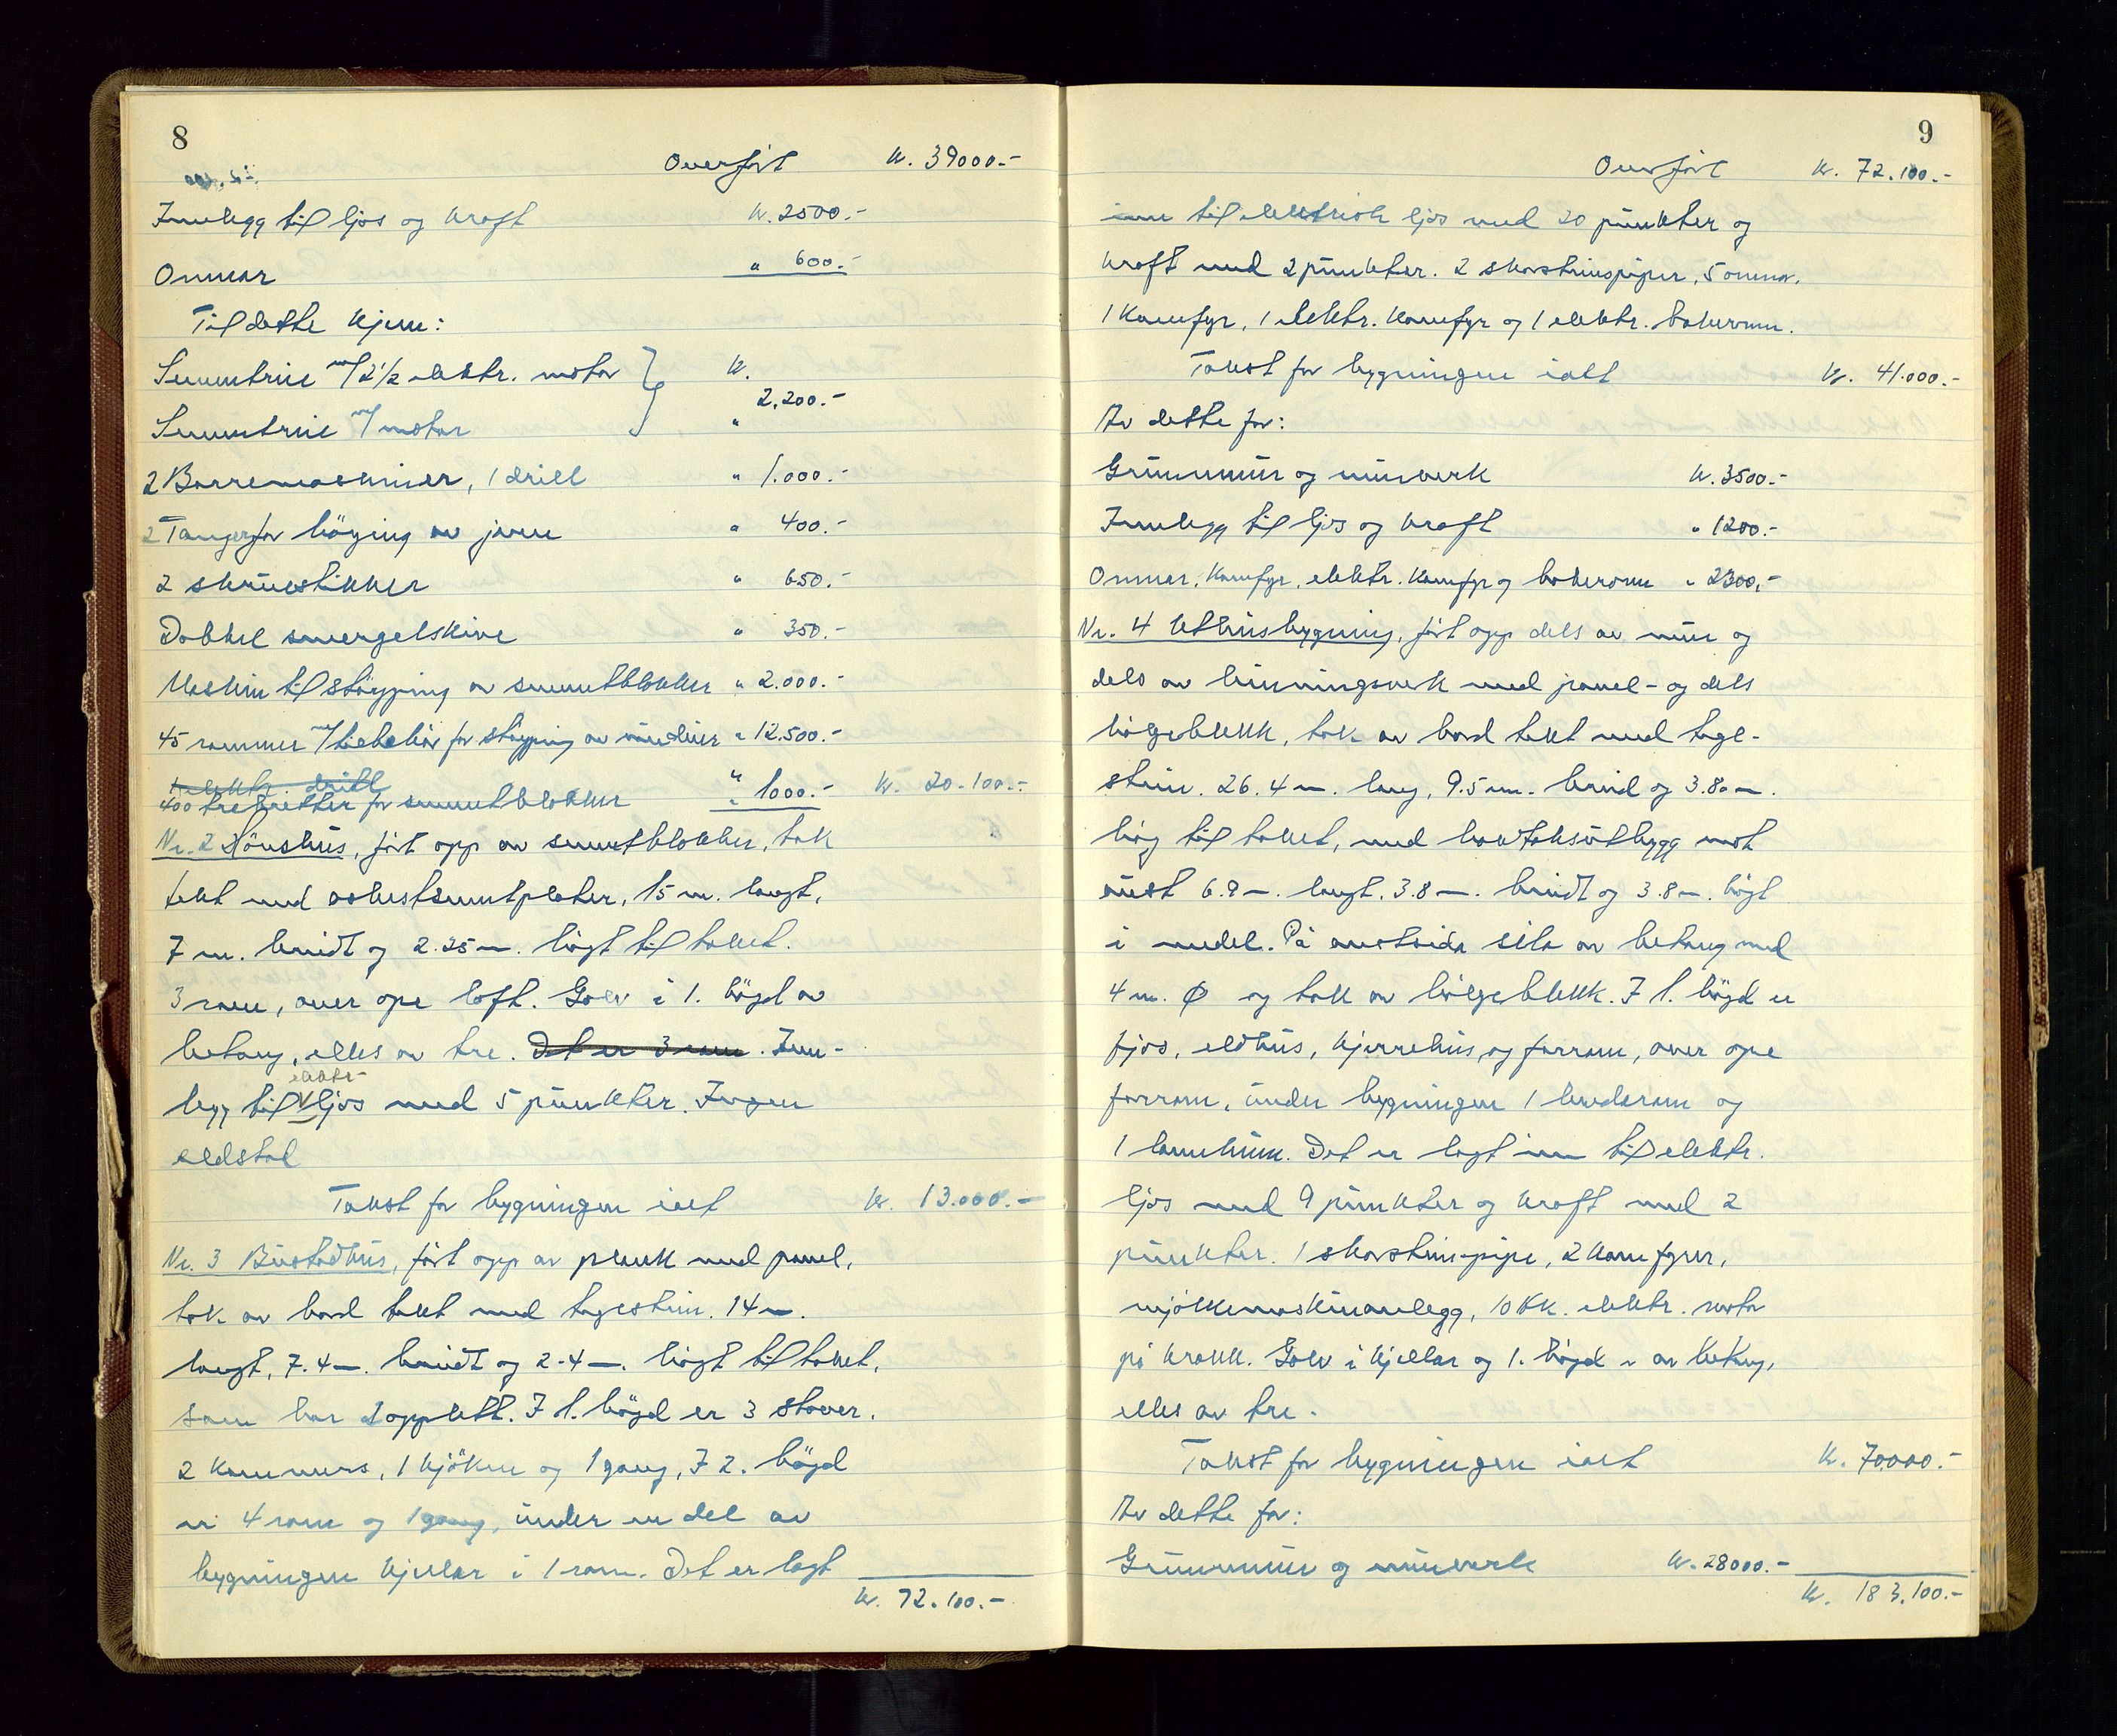 8
Overført kr. 39000.-
Innlegg til ljos og kraft kr. 2500.-
Omnar " 600.-
Til dette kjem:
Sementrie m/ 2 1/2 elektr. motor } kr.
2.200.-
Sementrie m/ motor "
2 Borremaskiner, 1 drill " 1.000.-
2 Tanger for böying av jern " 400.-
2 skruestikker " 650.-
Dobbel smergelskive " 350.-
Maskin til stöyping av sementblokker " 2.000.-
45 rammer m/ tilbehör for stöyping av " 12.500.-
1 elektr. drill
400 trebretter for sementblokker " 1000.- kr. 20.100.-
Nr. 2 Hönshus, fört opp av sementblokker, tak
tekt med asbestsementplater, 15 m. langt,
7 m. breidt og 2.25 m. högt til taket.
3 rom, over ope loft. Golv i 1. högd av
betong, elles av tre. Det er 3 rom. Inn-
legg til elektr. ljos med 5 punkter. Ingen
eldstad
Takst for bygningen ialt kr. 13.000.-
Nr. 3 Bustadhus, fört opp av plank med panel,
tak av bord tekt med taglstein. 14 m.
langt, 7.4 m. breidt og 2.4 m. högt til taket,
som har 1 opplett. I 1. högd er 3 stover,
2 kammers, 1 kjöken og 1 gang, I 2. högd
er 4 rom og 1 gang, under en del av
bygningen kjellar i 1 rom. Det er lagt
kr. 72.100.-
9
Overfört kr. 72.100.-
inn til elektrisk ljos med 20 punkter og
kraft med 2 punkter. 2 skorsteinspiper, 5 omnar,
1 komfyr, 1 elektr. komfyr og 1 elektr. bakeromn.
Takst for bygningen ialt kr. 41.000.-
Av dette for:
Grunnmur og murverk kr. 3500.-
Innlegg til ljos og kraft " 1200.-
Omnar, komfyr, elektr. komfyr og bakeromn " 2300.-
Nr. 4 Uthusbygning, fört opp dels av mur og
dels av bindingsverk med panel- og dels
bölgeblekk, tak av bord tekt med tagl-
stein. 26.4 m. lang, 9.5 m. breid og 3.80 m.
hög til taket, med halvtaksutbygg mot
aust 6.9 m. langt, 3.8 m. breidt og 3.8 m. högt
i medel. På austsida silo av betong med
4 m. Ø og tak av bölgeblekk. I 1. högd er
fjos, eldhus, kjerrehus, og forrom, over ope
forrom, under bygningen 1 reidsrom og
1 landkum. Det er lagt inn til elektr.
ljos med 9 punkter og kraft med 2
punkter. 1 skorsteinspipe, 2 komfyrer,
mjölkemaskinanlegg, 10 HK. elektr. motor
på krakk. Golv i kjellar og 1. högd er av betong,
elles av tre.
Takst for bygningen ialt kr. 70.000.-
Av dette for:
Grunnmur og murverk kr. 28000.-
kr. 183.100.-